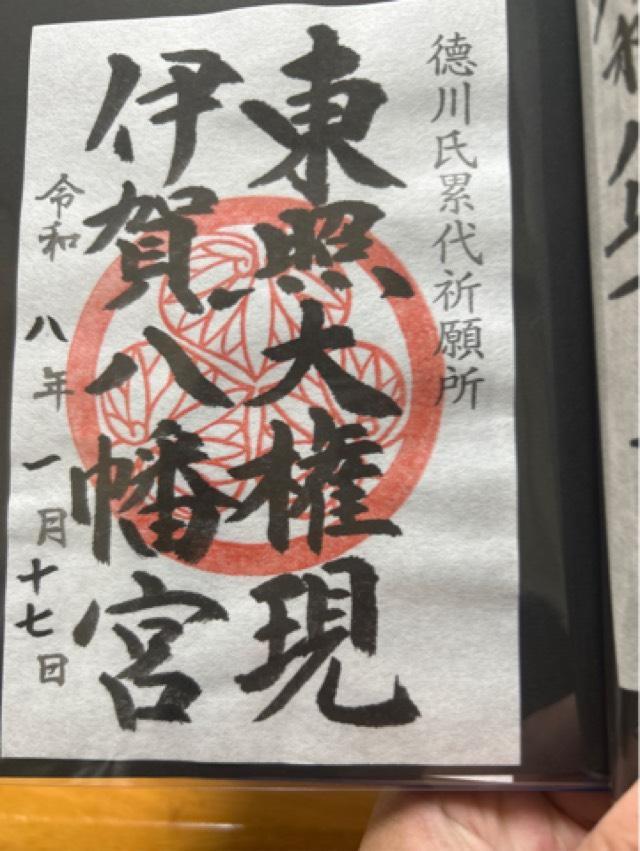 徳川氏累代祈願所
東照大権現
伊賀八幡宮
令和八年一月十七日